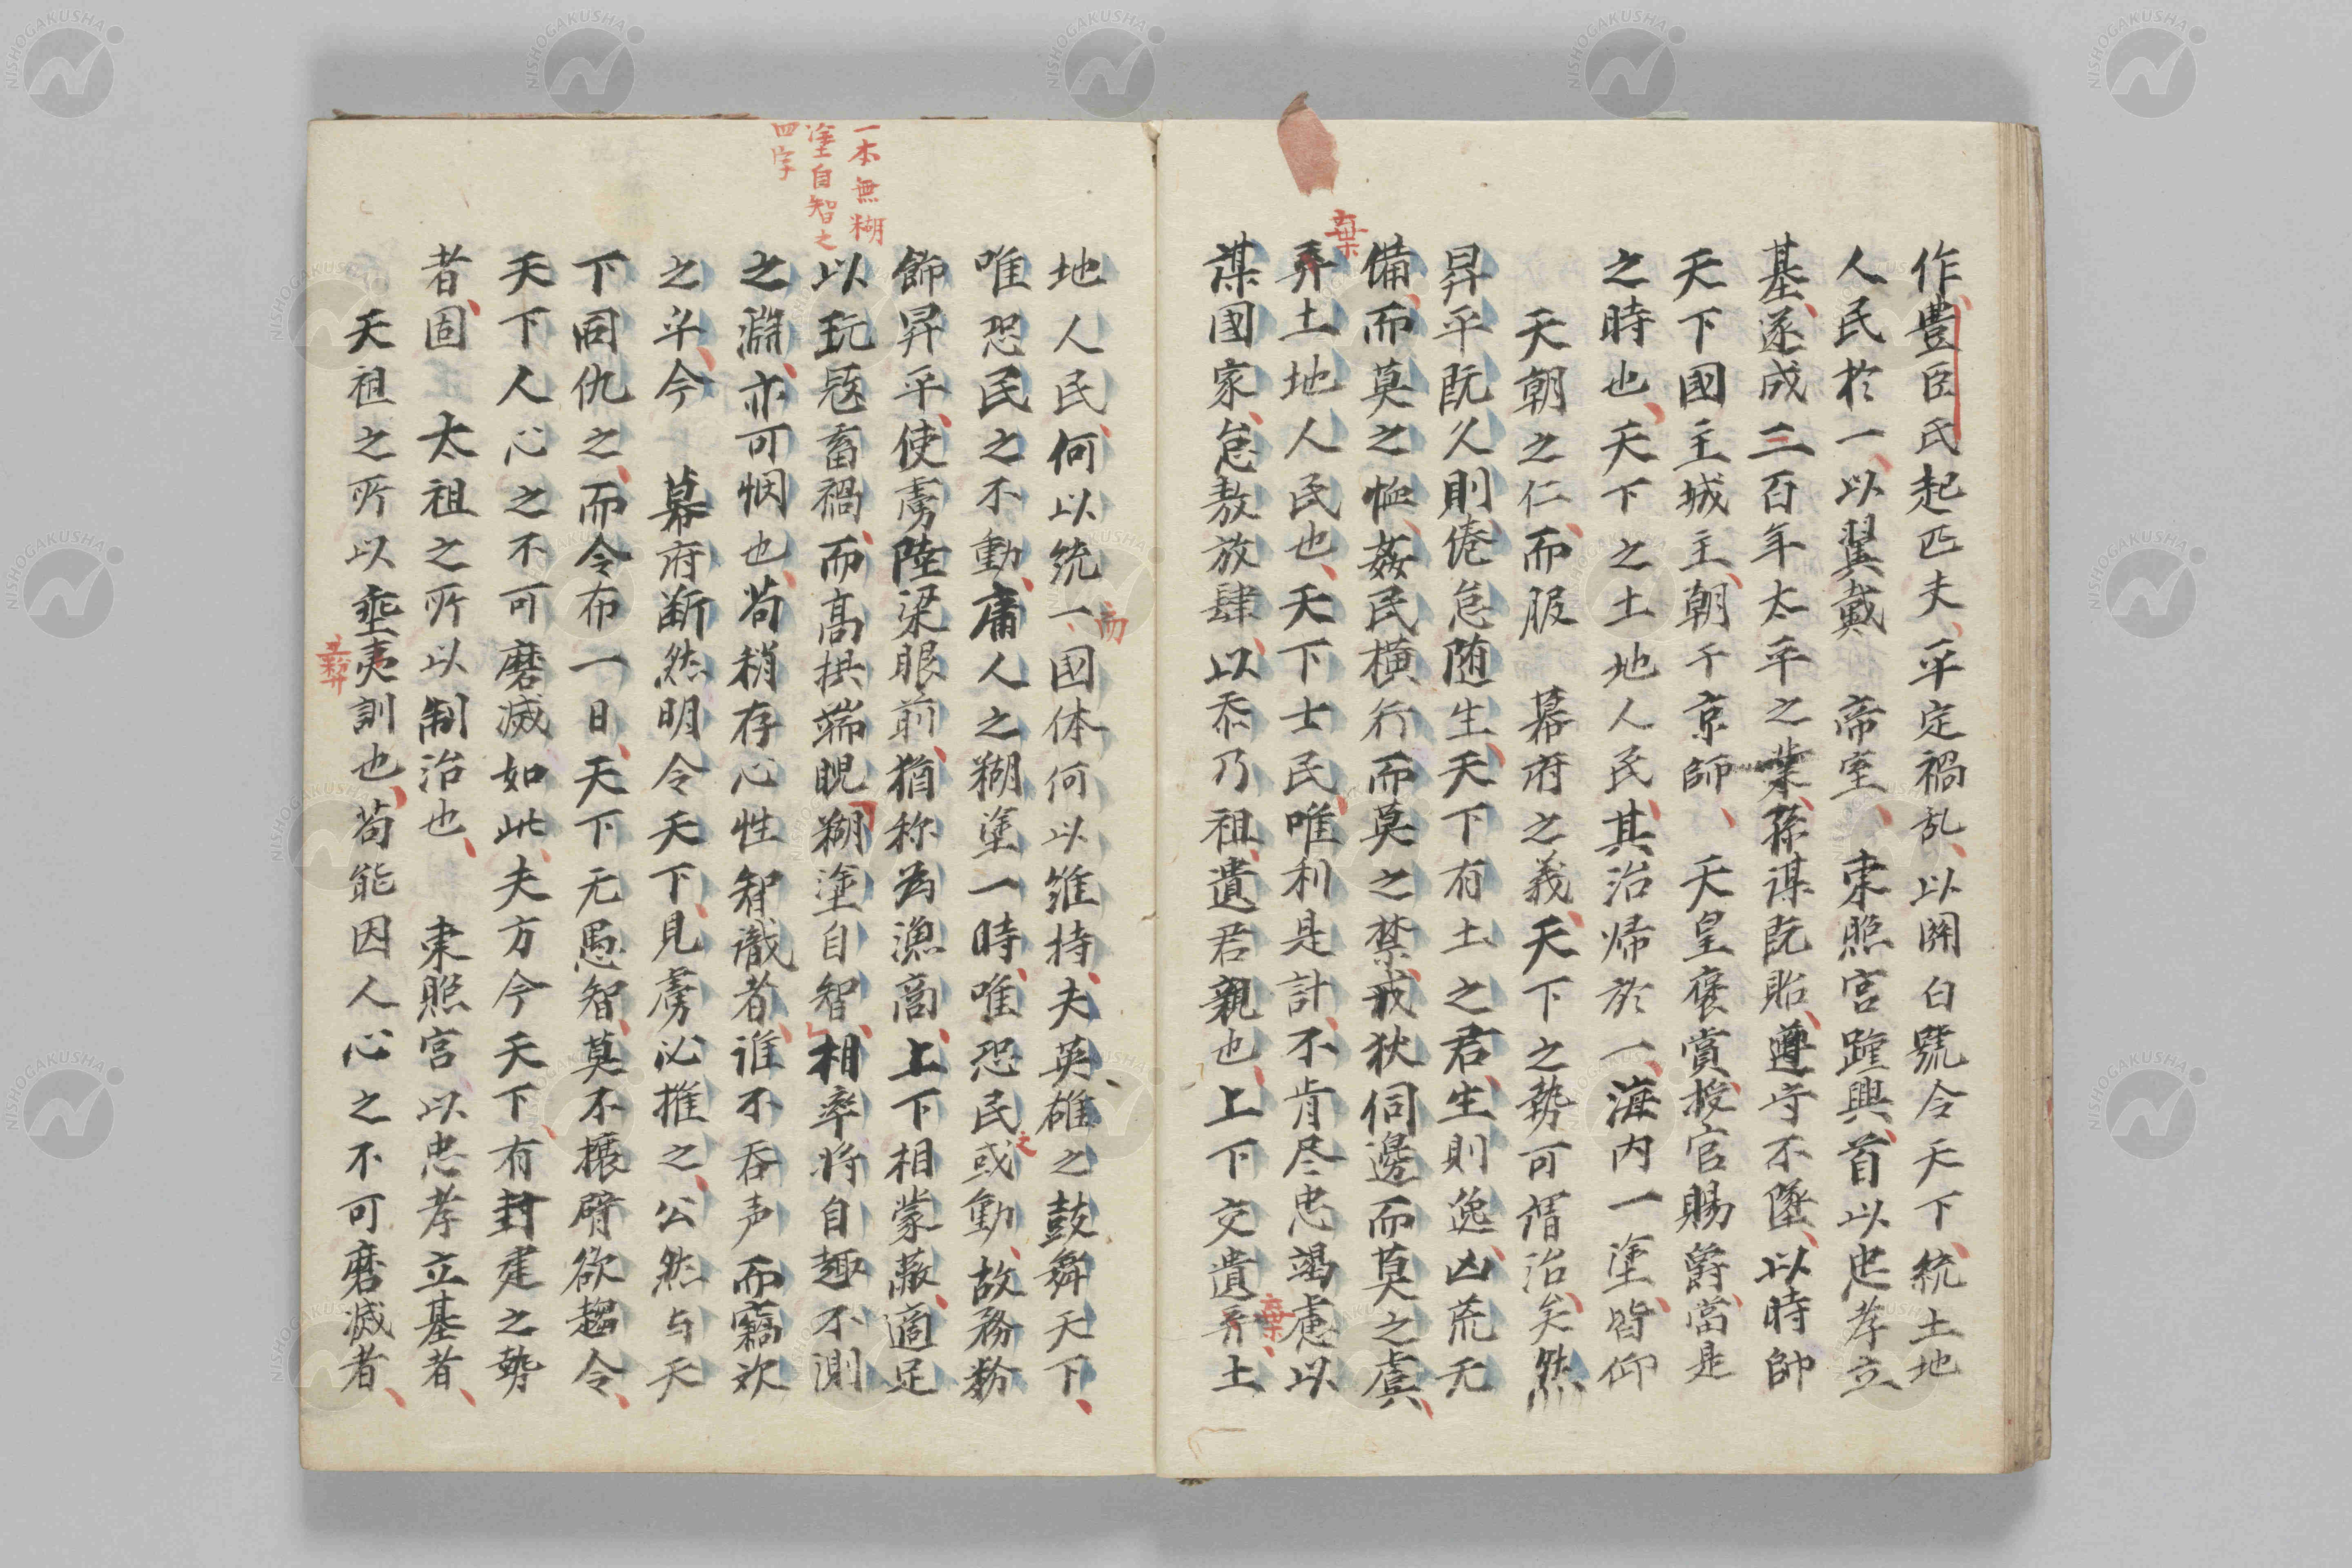 作豊臣氏起匹夫、平定禍乱、以関白號令天下、統土地
人民於一、以翼戴　帝室、　東照宮踵興、首以忠孝立
基、遂成二百年太平之業、孫謀既貽、遵守不墜、以時帥
天下國主城主、朝于京師、　天皇褒賞、授官賜爵、當是
之時也、天下之土地人民、其治帰於一、海内一塗、皆仰
　天朝之仁、而服　幕府之義、天下之勢可谓治矣、然
昇平既久、則倦怠随生、天下有土之君、生則逸、凶荒无
備、而莫之恤、姦民横行、而莫之禁、戎狄伺邊、而莫之虞、
棄
弃土地人民也、天下士民、唯利是計、不肯尽忠竭慮、以
謀國家、怠敖放肆、以忝乃祖、遺君親也、上下交遺弃土
棄
地人民、何以統一、國体何以維持、夫英雄之鼓舞天下、
而
唯恐民之不動、庸人之糊塗一時、唯恐民或動、故務粉
之
飾昇平、使虜陸梁眼前、猶称為漁商、上下相蒙蔽、適足
一本無糊
塗自智之
四字
以玩寇畜禍、而高拱端睨糊塗自智、相率将自趣不測
之淵、亦可悯也、苟稍存心性智識者、誰不吞声而竊欢
之乎、今　幕府断然明令天下、見虜必摧之、公然与天
下同仇之、而令布一日、天下无愚智、莫不攘臂欲趨令、
天下人心之不可磨滅如此、夫方今天下、有封建之勢
者、固　太祖之所以制治也、　東照宮以忠孝立基者、
　天祖之所以垂夷訓也、苟能因人心之不可磨滅者、
彝